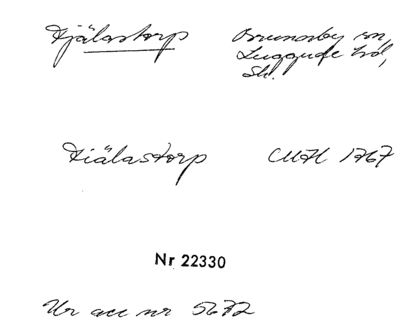 Fjälastorp Brunnby sn,
Luggude hd,
Sk.
Fiälastorp 1767
Nr 22330
Ur acc nr 5672